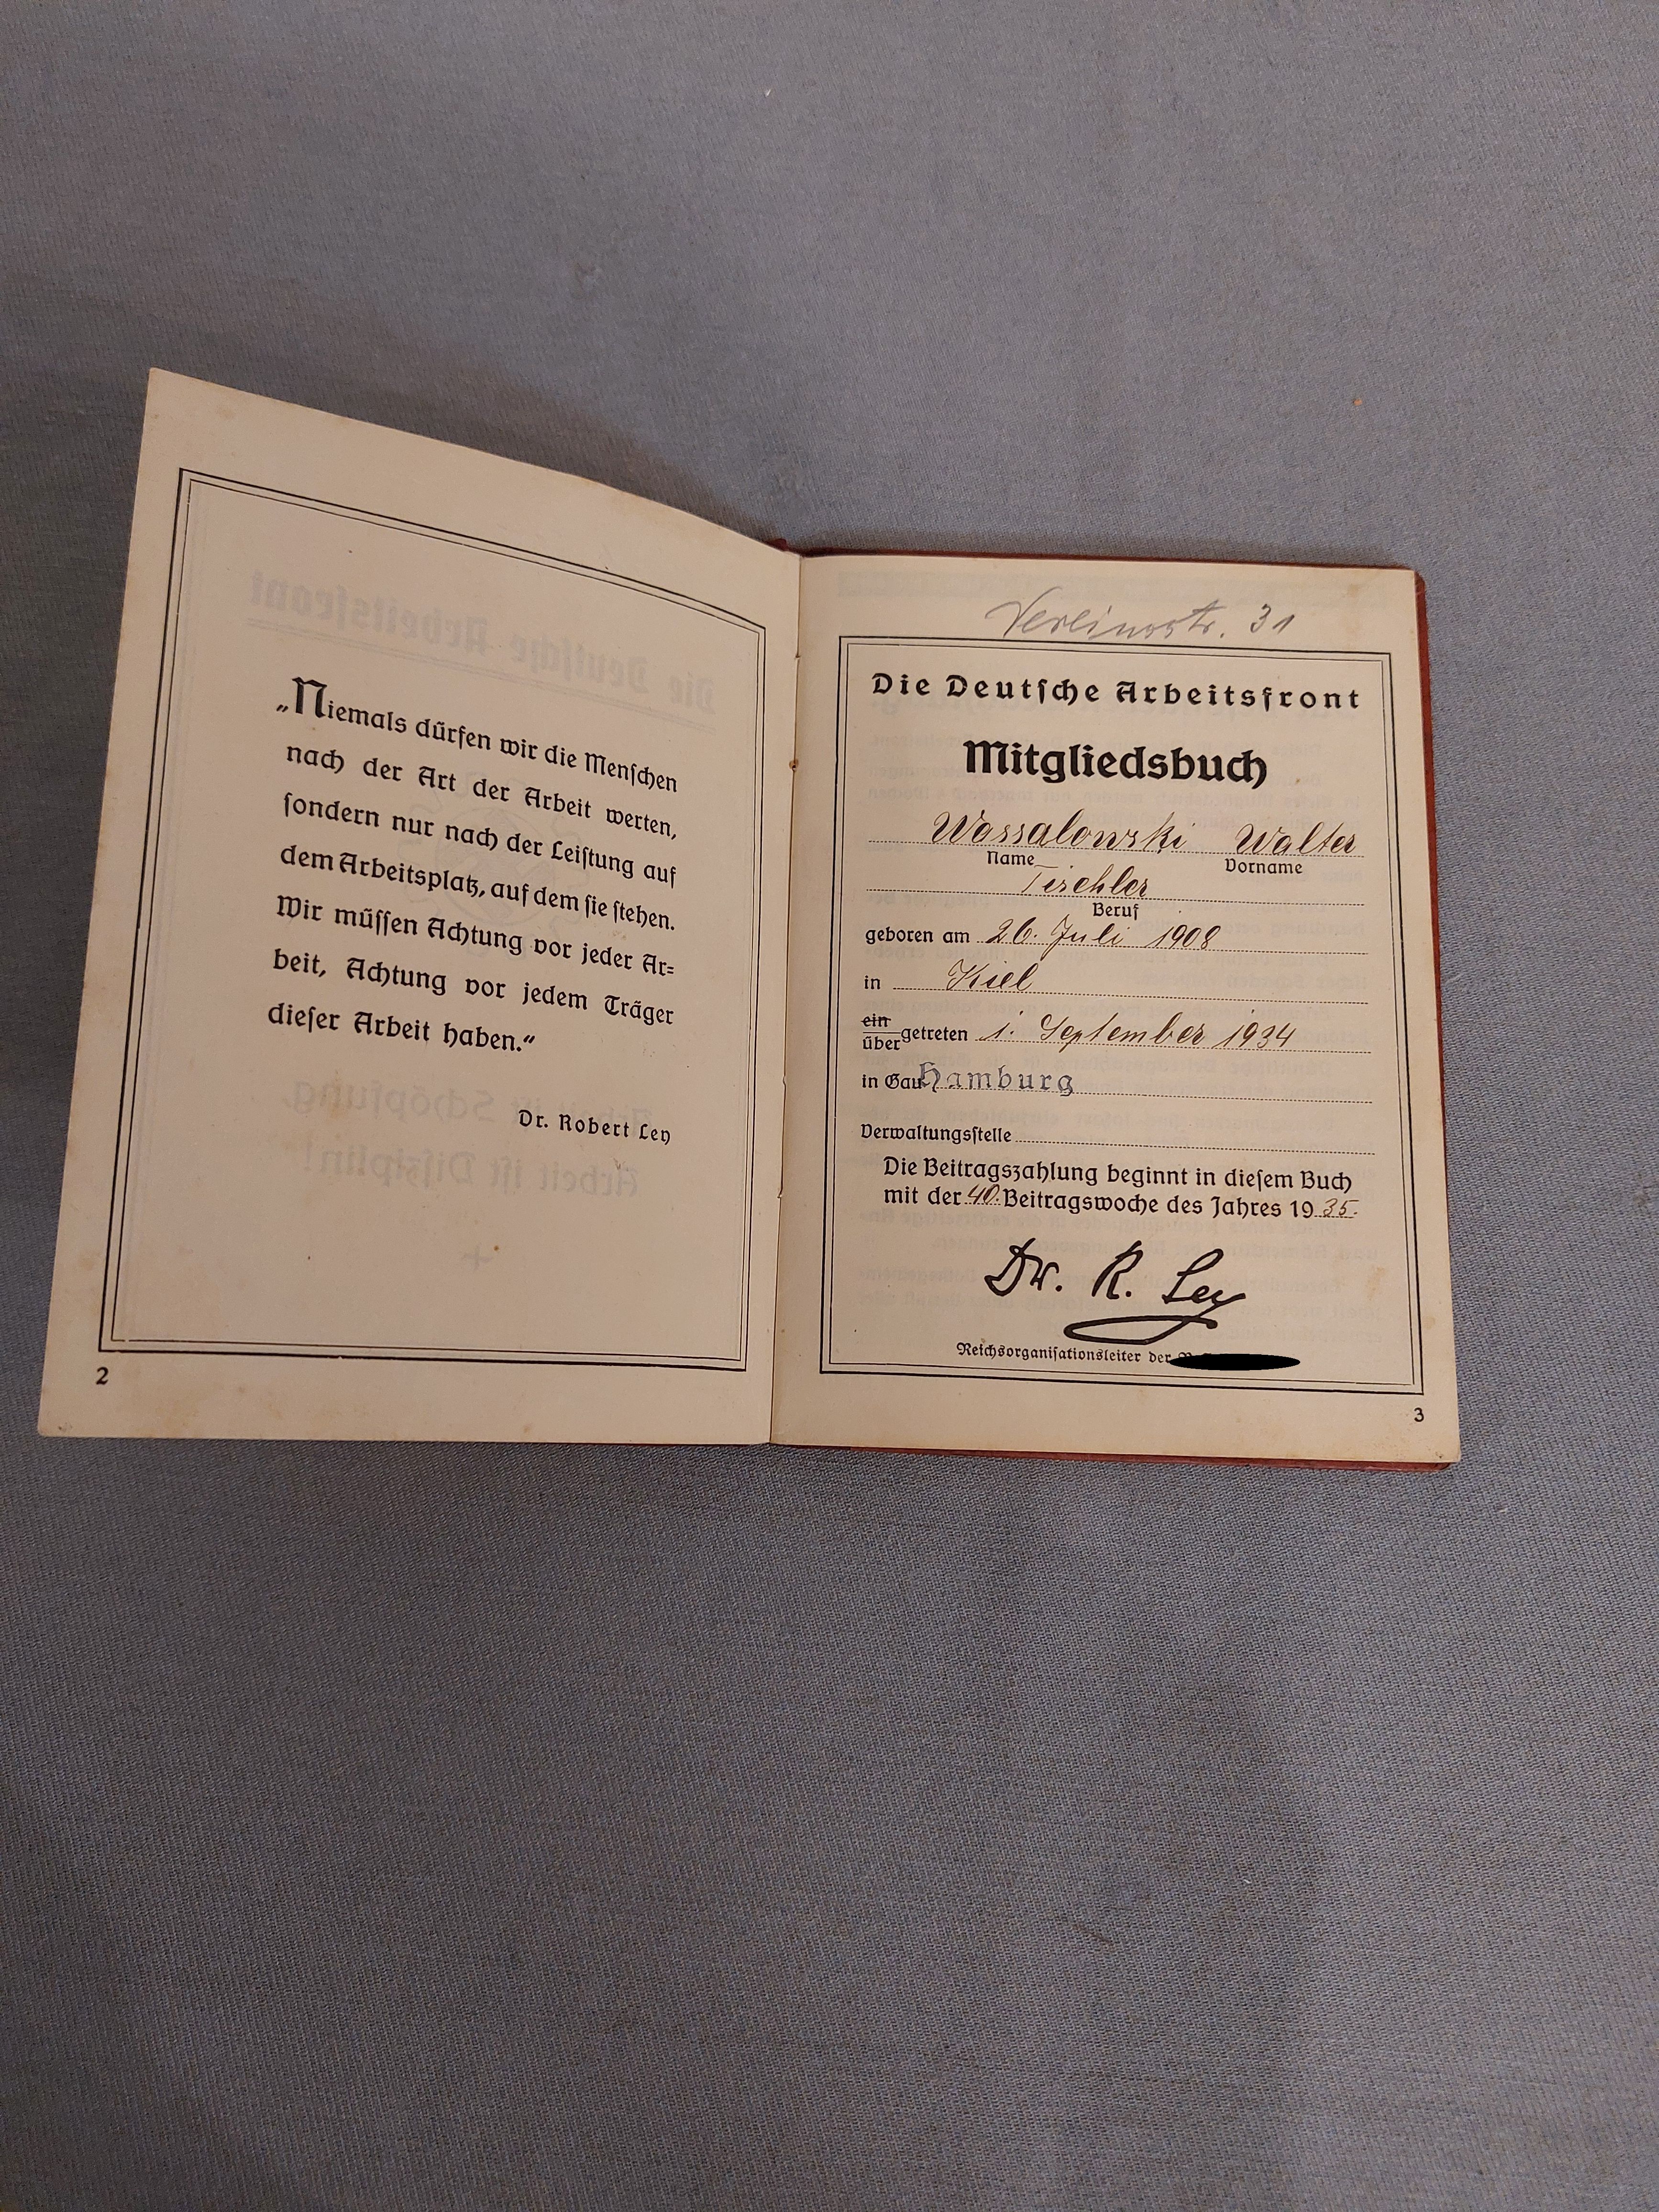 „Niemals dürfen wir die Menschen
nach der Art der Arbeit werten,
sondern nur nach der Leistung auf
dem Arbeitsplatz, auf dem sie stehen.
Wir müssen Achtung vor jeder Ar=
beit, Achtung vor jedem Träger
dieser Arbeit haben.“
Dr. Robert Ley
2
Vereinsstr. 31
Die Deutsche Arbeitsfront
Mitgliedsbuch
Wossalowski Walter
Name Vorname
Tischler
Beruf
geboren am 26. Juli 1908
in Kiel
ein
über getreten 1. September 1934
in Gau Hamburg
Verwaltungsstelle
Die Beitragszahlung beginnt in diesem Buch
mit der 40. Beitragswoche des Jahres 19 35.
Dr. R. Ley
Reichsorganisationsleiter der
3